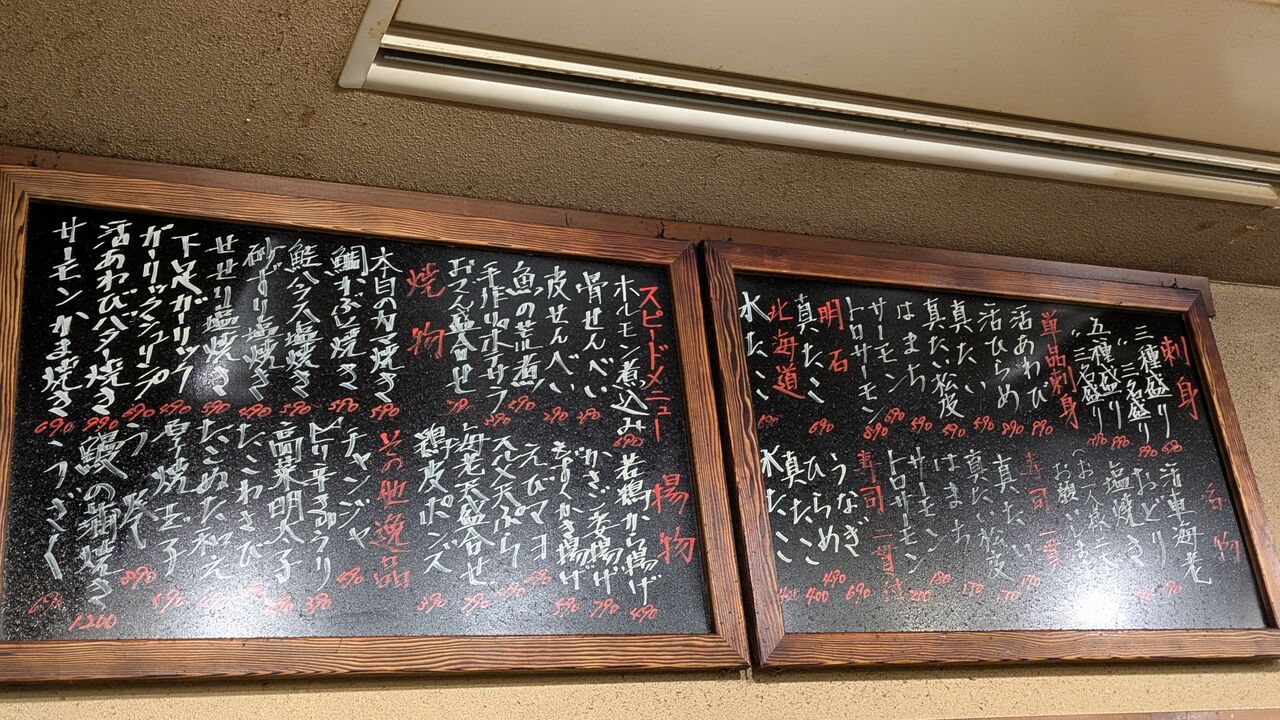 刺身
三種盛り 690
〃 三名盛り 990
五種盛り 990
〃 三名盛り 1790
単品刺身
活あわび 990
活ひらめ 890
真たい 490
真たい松皮 590
はまち 490
サーモン 690
トロサーモン 890
明石
真たこ 690
北海道
水たこ 690
活物
活車海老
おどり 790
塩焼き 790
(お一人様二
お願いします
寿司一貫
真たい 170
真たい松皮 170
はまち 170
サーモン 180
トロサーモン 200
寿司二貫付
うなぎ 690
ひらめ 490
真たこ 400
水たこ 400
スピードメニュー
ホルモン煮込み 690
骨せんべい 290
皮せんべい 290
魚の荒煮 490
手作りポテサラ
おでん盛合せ
焼物
本日のカマ焼き 590
鯛かぶと焼き 590
鮭ハラス塩焼き 590
砂ずり塩焼き 490
せせり塩焼き 590
下足ガーリック 490
ガーリックシュリンプ 690
活あわびバター焼き 990
サーモンかま焼き 690
揚物
若鶏から揚げ 590
かさご姿揚げ 790
もずくかき揚げ 590
えびマヨ
天ぷら
海老天盛合せ 790
鶏皮ポンズ 390
その他逸品
チャンジャ 490
ピリ辛きゅうり 390
高菜明太子
たこわさび
たこぬた和え
厚焼玉子 490
う巻 890
鰻の蒲焼き 1200
うざく 690